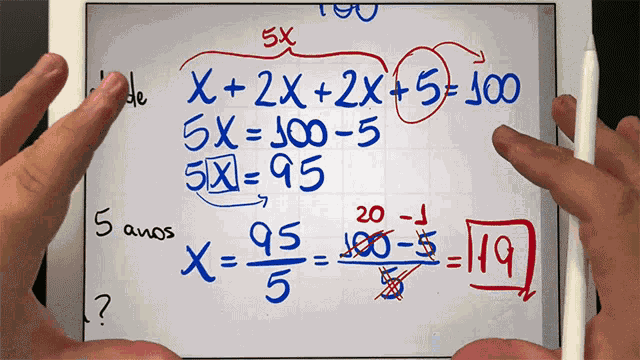 5x
x + 2x + 2x + 5 = 100
5x = 100 - 5
5x = 95
5 anos
20 - 1
x = 95/5 = 100 - 5/5 = 19
?